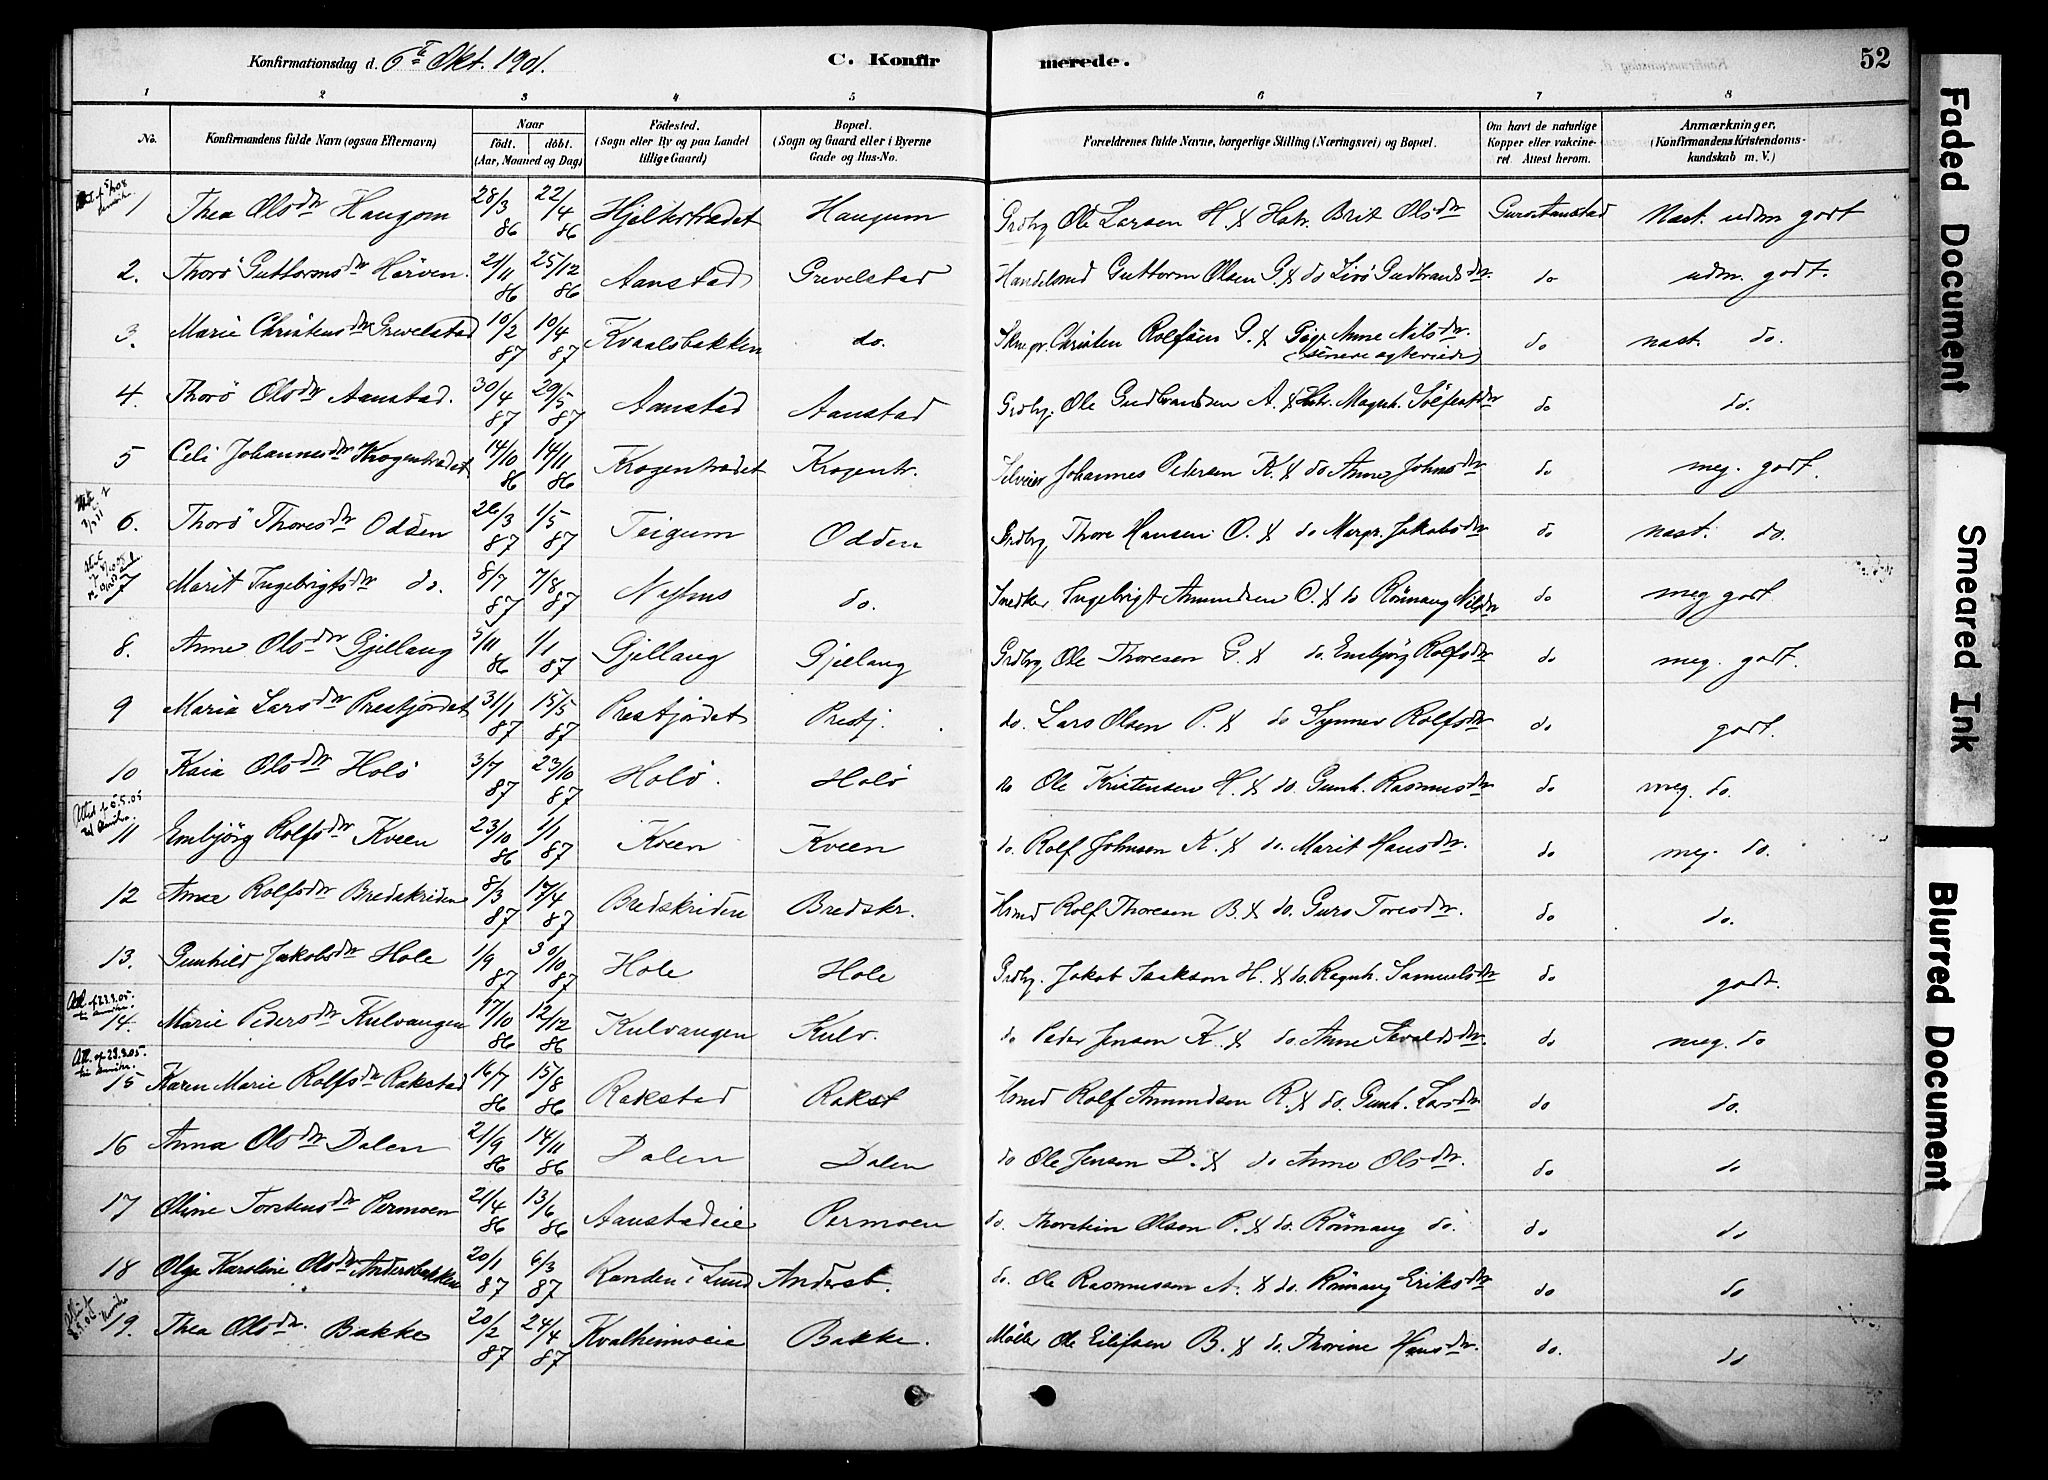 Konfirmationsdag d. 6te Okt. 1901. C. Konfirmerede. 52
1 2 3 4 5 6 7 8
No. Konfirmandens fulde Navn (ogsaa Efternavn) Naar født. døbt. (Aar, Maaned og Dag) Fødested. (Sogn eller By og paa Landet tillige Gaard) Bopæl. (Sogn og Gaard eller i Byerne Gade og Hus-No. Forældrenes fulde Navne, borgerlige Stilling (Næringsvei) og Bopæl. Om havt de naturlige Kopper eller vakcineret. Attest herom. Anmærkninger. (Konfirmandens Kristendomskundskab m. V.)
1 Thea Olsdtr Haugom 28/3 86 22/4 86 Hjeltestrædet Haugum Grdbr Ole Larsen H. & Hstr. Brit Olsdtr Guro Aanstad Nast. udm godt
2. Thorø Guttormsdtr Harven. 21/11 86 25/12 86 Aanstad Grevelstad Handelsmd Guttorm Olsen G. & do Livø Gudbrandsdtr. do udm. godt.
3. Marie Christensdtr Grevelstad 10/2 87 10/4 87 Kvaalsbakken do. Christen Rolfsen G. & Pige Anne Nilsdtr. (senere agteviede) do nast. do.
4. Thorø Olsdtr Aanstad. 30/4 87 29/5 87 Aanstad Aanstad Grdbr. Ole Gudbrandsen A. & Hstr. Magnh. Sølfestsdtr do do.
5 Celi Johannesdtr Krogentrædet 14/10 86 14/11 86 Krogentrædet Krogentr. Selveier Johannes Pedersen K. & do Anne Johnsdtr do meg. godt.
6. Thorø Thoresdtr Odden 26/3 87 1/5 87 Teigum Odden Grdbr Thore Hansen O. & do Margr. Jakobsdtr do nast. do.
7 Marit Ingebrigtsdtr do. 8/7 87 7/8 87 Nyhus do. Snedker Ingebrigt Amundsen O. & do Rønnaug Nilsdtr do meg godt
8. Anne Olsdtr Gjellaug 5/11 86 1/1 87 Gjellaug Gjellaug Grdbr. Ole Thoresen G. & do. Embjørg Rolfsdtr do meg. godt.
9 Maria Larsdtr Prestjordet 31/1 87 15/5 87 Prestjordet Prestj. do. Lars Olsen P. & do Synnev Rolfsdtr do godt.
10 Kaia Olsdtr Holø 3/7 87 23/10 87 Holø. Holø do Ole Kristensen H. & do. Gunh. Rasmusdtr do meg. do.
11 Embjörg Rolfsdtr Kveen 23/10 86 1/1 87 Kveen Kveen do. Rolf Johnsen K. & do. Marit Hansdtr. do meg. do.
12 Anne Rolfsdtr Bredskriden 8/3 87 17/4 87 Bredskriden Bredskr. Hsmd Rolf Thoresen B. & do. Guro Toresdtr. do do.
13. Gunhild Jakobsdtr Hole 1/9 87 30/10 87 Hole Hole Grdbr. Jakob Isaksen H. & do. Ragnh. Samuelsdtr do godt.
14. Marie Pedersdtr Kulvangen 17/10 86 12/12 86 Kulvangen Kulv. do Peder Jensen K. & do. Anne Sivaldsdtr. do meg. do
15 Karen Marie Rolfsdtr Rakstad 16/7 86 15/8 86 Rakstad Rakst Hsmd Rolf Amundsen R. & do. Gunh. Larsdtr do do.
16 Anna Olsdtr Dalen 21/9 86 14/11 86 Dalen Dalen do Ole Jensen D. & do Anne Olsdtr. do do
17 Oline Torstensdtr Permoen 21/4 86 13/6 86 Aanstadeie Permoen do. Thorstein Olsen P. & do. Rønnaug do. do do
18 Olga Karoline Olsdtr Andersbakken 20/1 87 6/3 87 Randen i Lund Andersb. do. Ole Rasmussen A. & do. Rønnaug Eriksdtr do do
19. Thea Olsdtr. Bakke 20/2 87 24/4 87 Kvalheimseie Bakke. Møller Ole Eilifsen B. & do. Thorine Hansdtr. do. do
Faded Document
Smeared Ink
Blurred Document